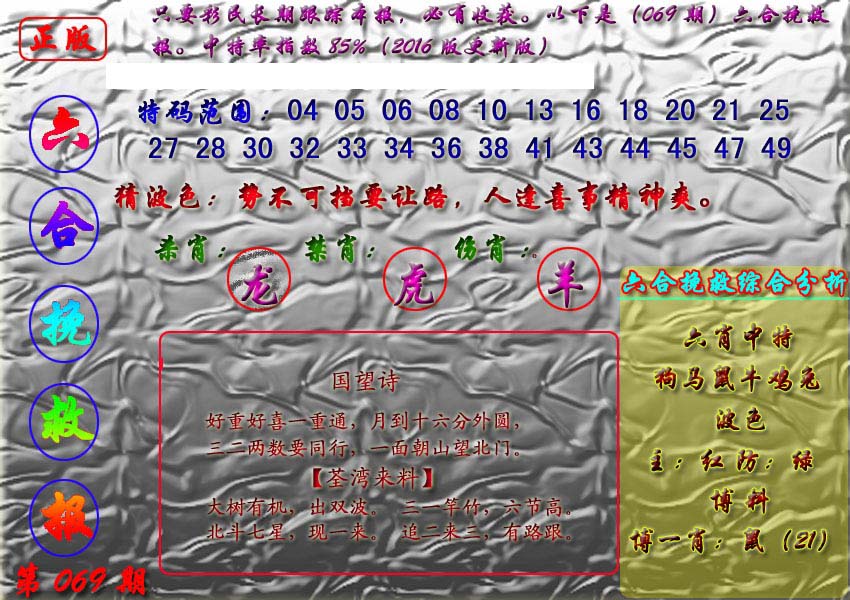 正版
只要彩民长期跟踪本报，必有收获。以下是（069期）六合挽救
报。中特率指数85%（2016版更新版）
六合挽救报
第069期
特码范围：04 05 06 08 10 13 16 18 20 21 25
27 28 30 32 33 34 36 38 41 43 44 45 47 49
猜波色：势不可挡要让路，人逢喜事精神爽。
杀肖：龙 禁肖：虎 伤肖：羊
国望诗
好重好喜一重通，月到十六分外圆，
三二两数要同行，一面朝山望北门。
【荃湾来料】
大树有机，出双波。 三一竿竹，六节高。
北斗七星，现一来。 追二来三，有路跟。
六合挽救综合分析
六肖中特
狗马鼠牛鸡兔
波色
主：红防：绿
博料
博一肖：鼠（21）